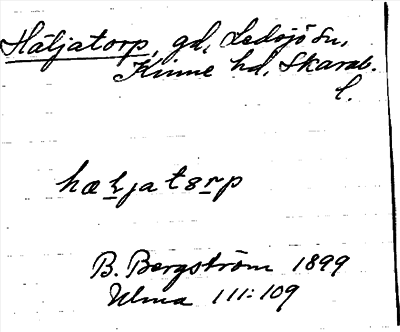 Häljatorp, gd, Ledsjö sn,
Kinne hd, Skarab.
l.
hæljatorp
B. Bergström 1899
Ulma 111:109